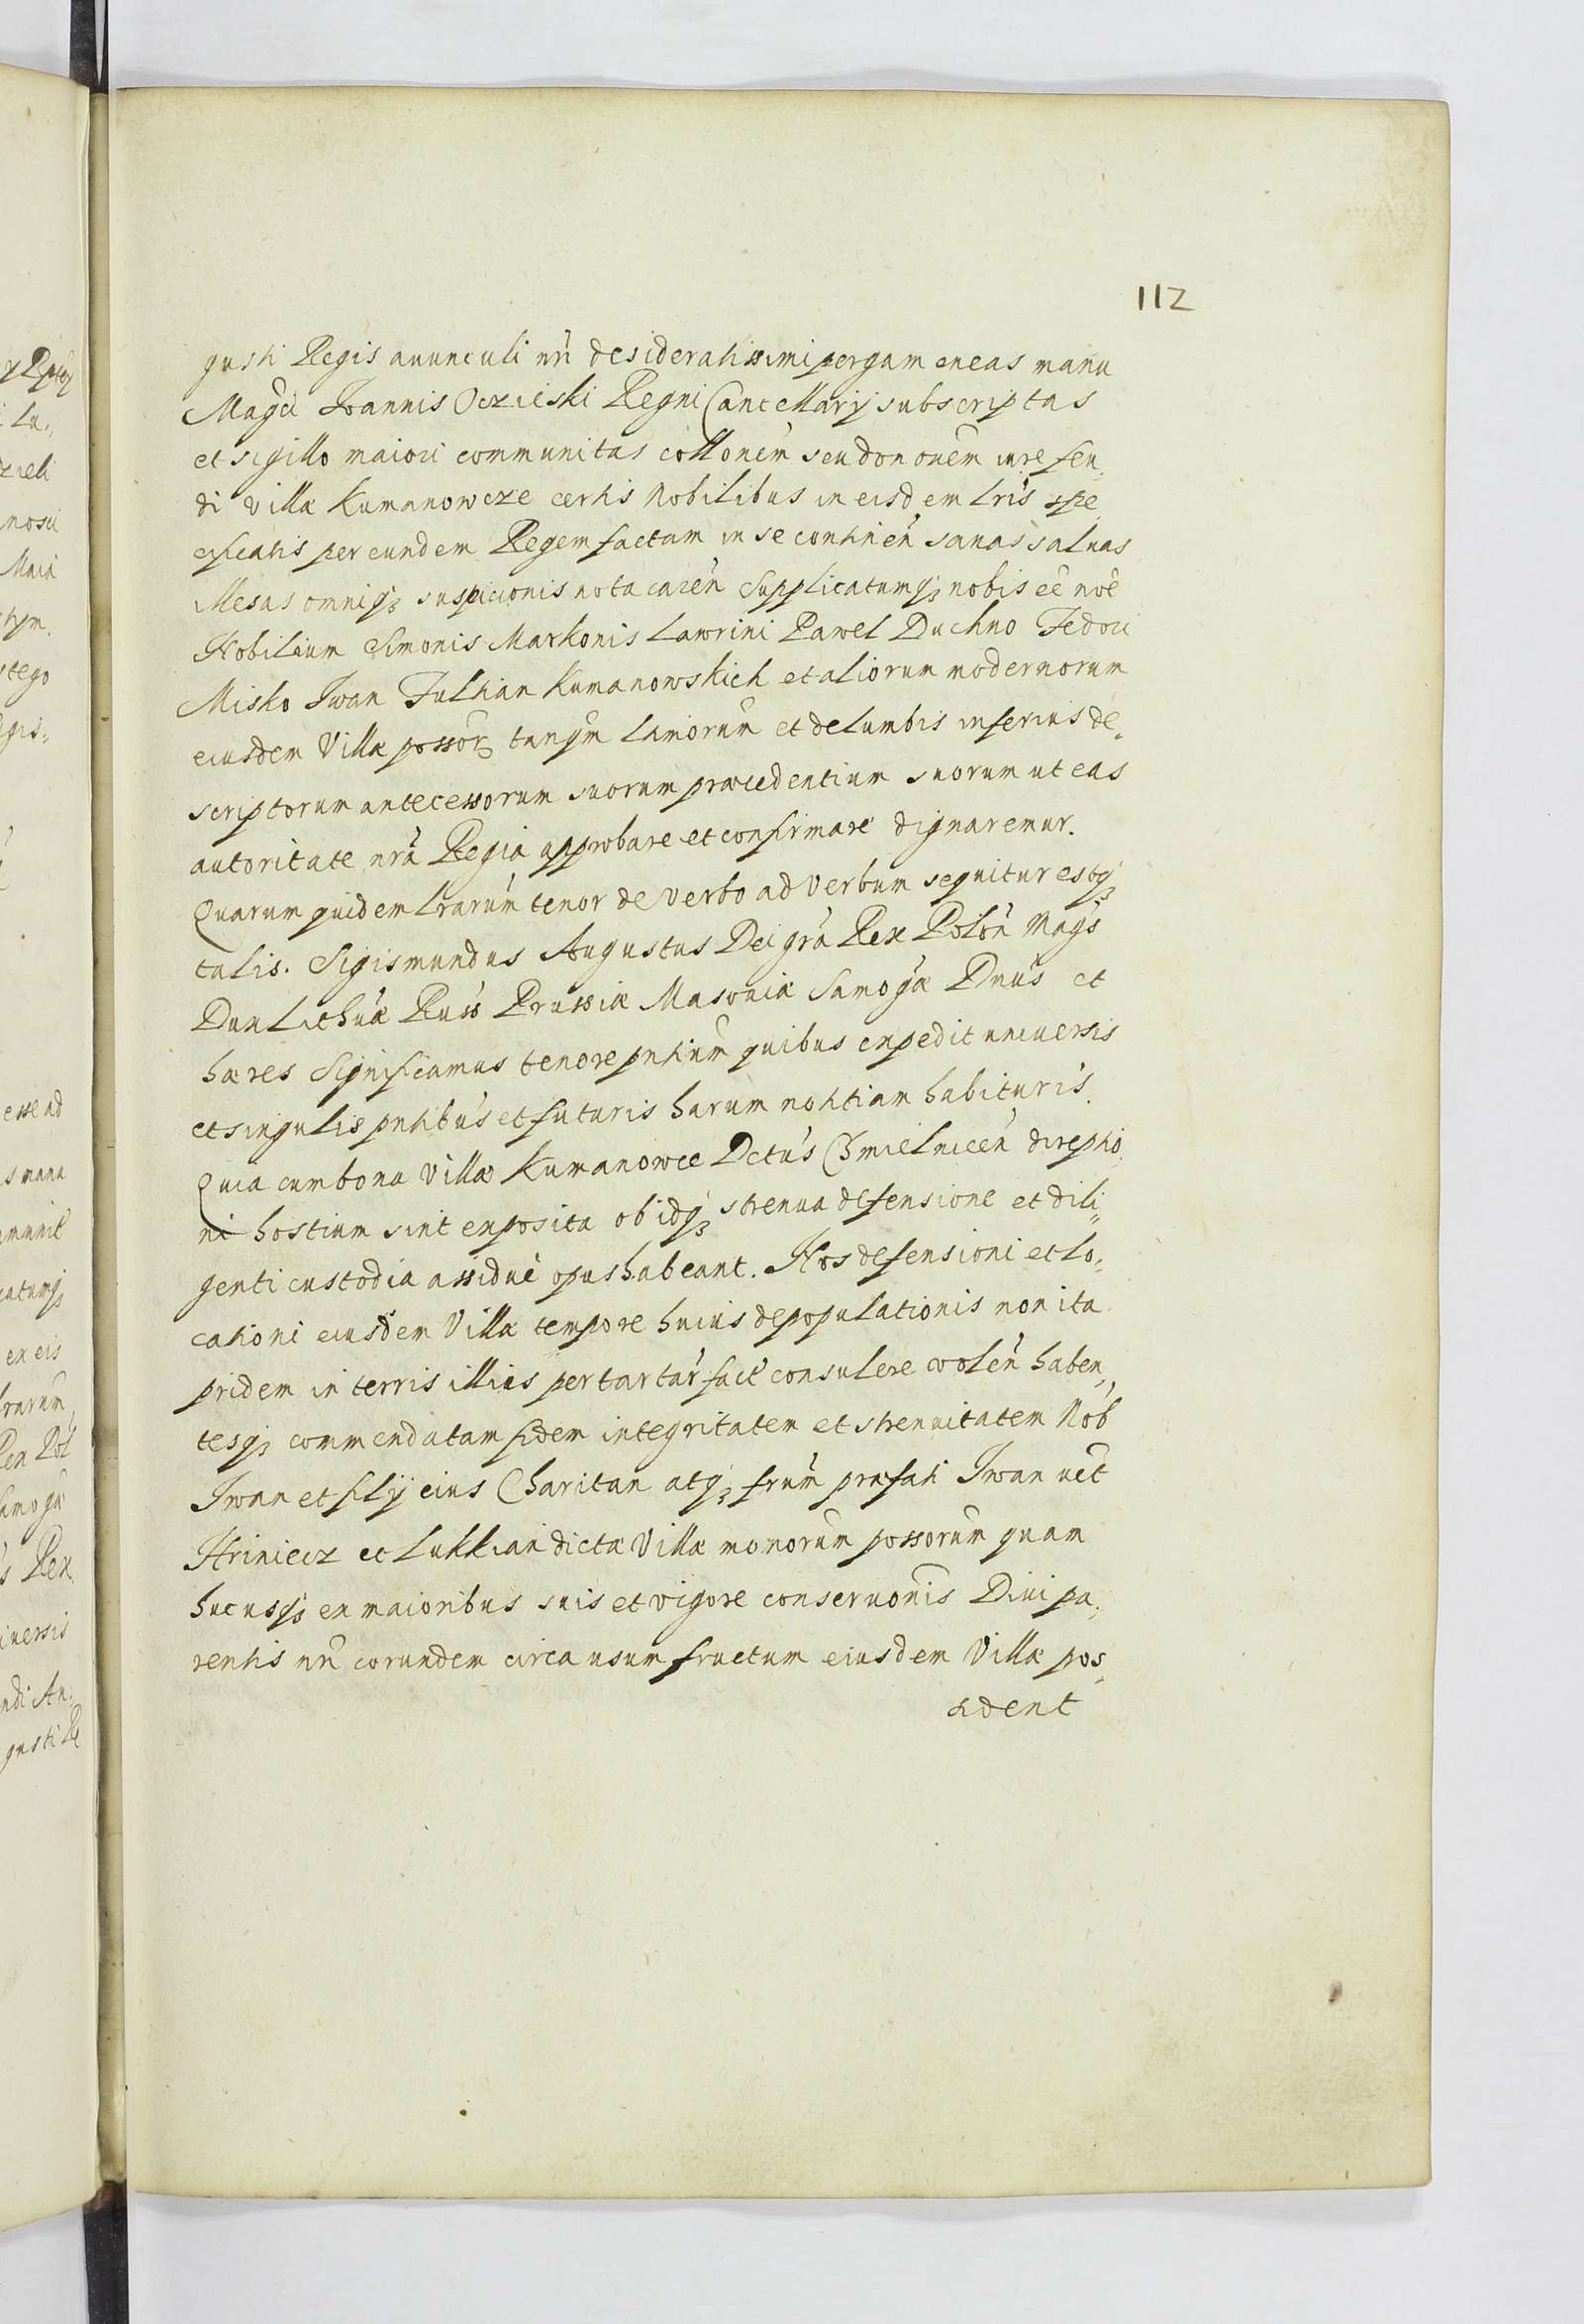 112
gusti Regis auunculi nri desideratissimi pergameneas manu
Magci Ioannis Oczieski Regni Cancellarij subscriptas
et sigillo maiori communitas collonem seu donõnem iure feu„
di Villæ Kumanowcze certis Nobilibus in eisdem lris spe„
cificatis per eundem Regem factam in se continen sanas saluas
illesas omniq3 suspicionis nota caren Supplicatumq3 nobis eê noê
Nobilium Simonis Markonis Lawrini Pawel Duchno Fedori
Misko Iwan Fulhian Kumanowskich et aliorum modernorum
eiusdem Villæ possor tanqm et inferius de„
scriptorum antecessorum suorum præcedentium suorum ut eas
autoritate nra Regia approbare et confirmare dignaremur.
Quarum quidem lrarum tenor de verbo ad Verbum sequitur estq3
talis. Sigismundus Augustus Dei gra Rex Polon Mags
Dux Lithuæ Russ Prussiæ Masouiæ Samogæ Dnus et
hæres Significamus tenore pntium quibus expedit uniuersis
et singulis pntibus et futuris harum notitiam habituris.
Quia cum bona Villæ Kumanowce Dctus Chmielnicen direptio„
ni hostium sint exposita ob idq3 strenua defensione et dili„
genti custodia assiduè opus habeant. Nos defensioni et lo„
cationi eiusdem Villæ tempore huius depopulationis non ita
pridem in terris illius per tartar fact consulere volen haben„
tesq3 commendatam fidem integritatem et strenuitatem Nob
Iwan et filij eius Charitan atq3 frum præfati Iwan uct
Hriniecz et Lukkian dictæ Villæ monorum possorum quam
hucusq3 ex maioribus suis et vigore conseruonis Diui pa„
rentis nri eorundem circa usum fructum eiusdem Villæ pos„
sident